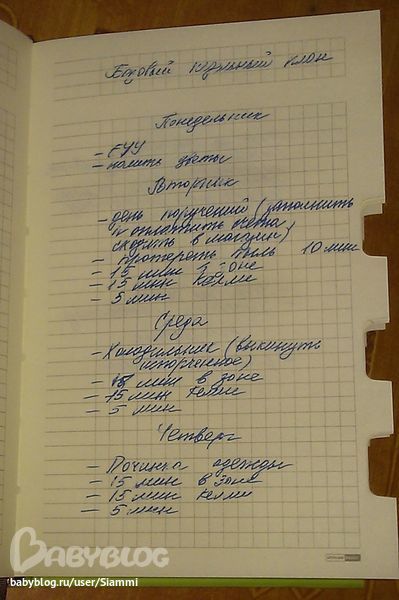 Базовый нужный план
Понедельник
- ГУУ
- полить цветы
Вторник
- день поручений (заполнить
и оплатить счета
сходить в магазин)
- протереть пыль 10 мин
- 15 мин в зоне
- 15 мин Келли
- 5 мин
Среда
- Холодильник (выкинуть
испорченное)
- 15 мин в зоне
- 15 мин Келли
- 5 мин
Четверг
- Починка одежды
- 15 мин в зоне
- 15 мин Келли
- 5 мин
BABYBLOG
babyblog.ru/user/Siammi